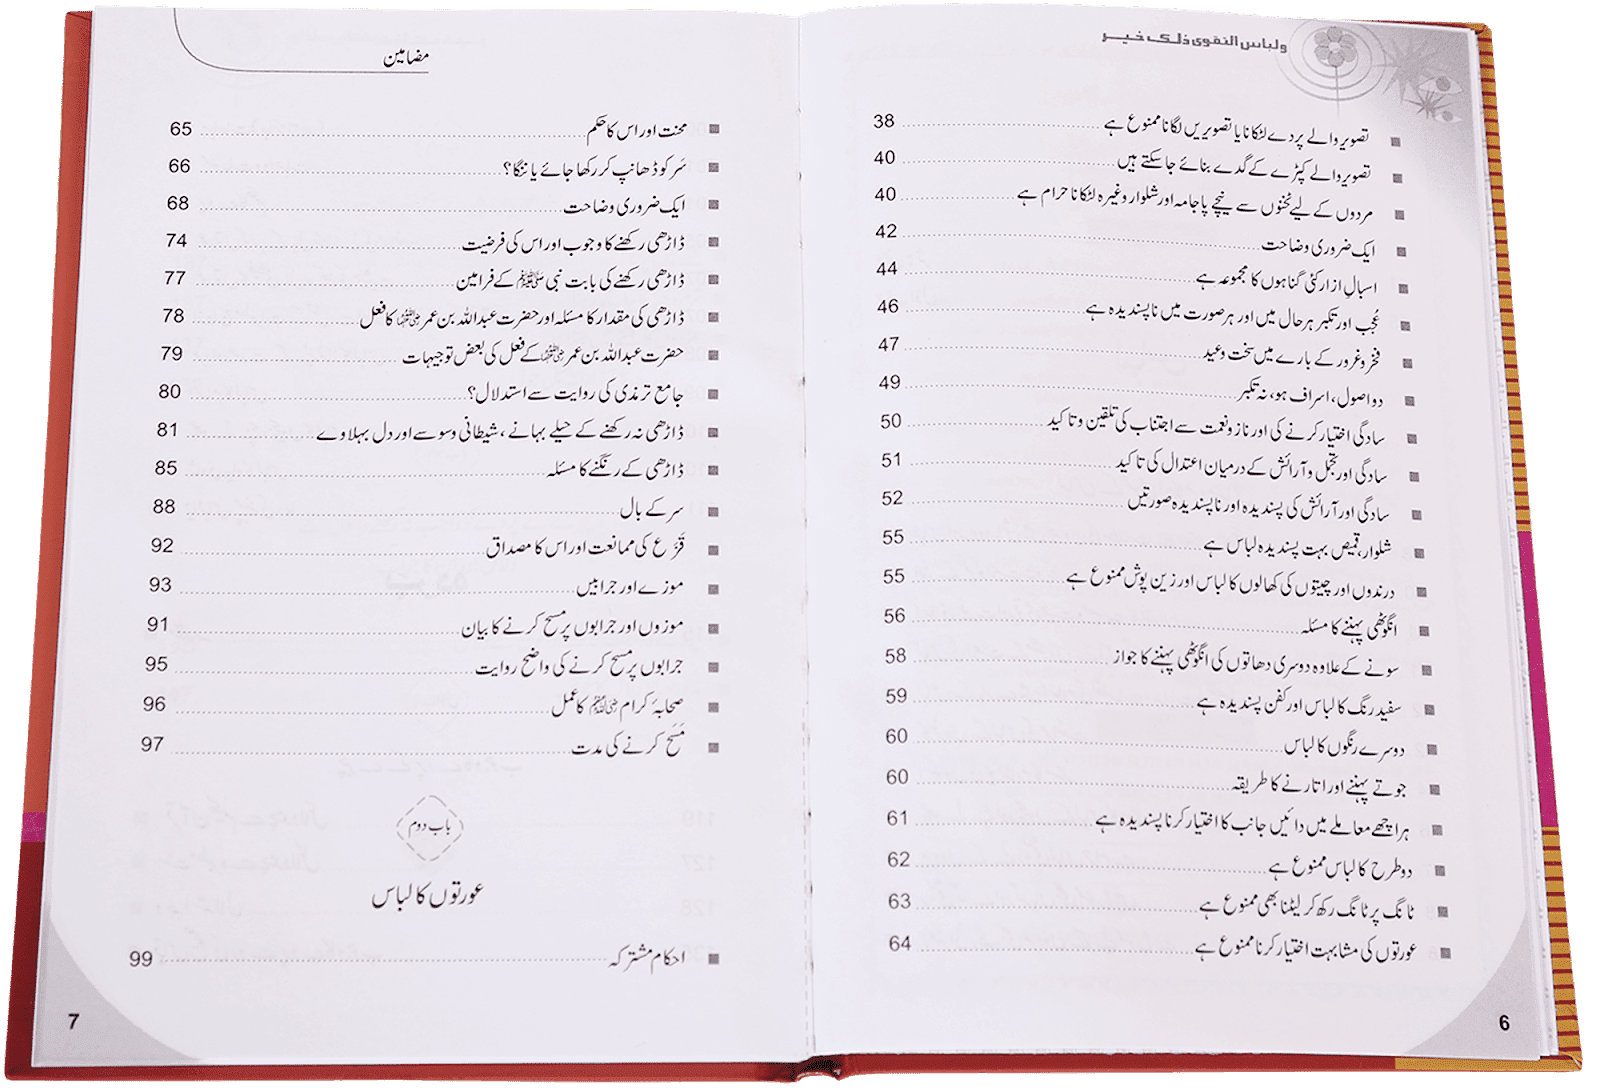 ولباس التقوى ذلك خير
تصویر والے پردے لٹکانا یا تصویریں لگانا ممنوع ہے 38
تصویر والے کپڑے کے گدے بنائے جا سکتے ہیں 40
مردوں کے لیے ٹخنوں سے نیچے پاجامہ اور شلوار وغیرہ لٹکانا حرام ہے 40
ایک ضروری وضاحت 42
اسبالِ ازار کئی گناہوں کا مجموعہ ہے 44
عُجب اور تکبر ہر حال میں اور ہر صورت میں ناپسندیدہ ہے 46
فخر و غرور کے بارے میں سخت وعید 47
دو اصول، اسراف ہو، نہ تکبر 49
سادگی اختیار کرنے کی اور ناز و نعمت سے اجتناب کی تلقین و تاکید 50
سادگی اور تجمل و آرائش کے درمیان اعتدال کی تاکید 51
سادگی اور آرائش کی پسندیدہ اور ناپسندیدہ صورتیں 52
شلوار، قمیص بہت پسندیدہ لباس ہے 55
درندوں اور چیتوں کی کھالوں کا لباس اور زین پوش ممنوع ہے 55
انگوٹھی پہننے کا مسئلہ 56
سونے کے علاوہ دوسری دھاتوں کی انگوٹھی پہننے کا جواز 58
سفید رنگ کا لباس اور کفن پسندیدہ ہے 59
دوسرے رنگوں کا لباس 60
جوتے پہننے اور اتارنے کا طریقہ 60
ہر اچھے معاملے میں دائیں جانب کا اختیار کرنا پسندیدہ ہے 61
دو طرح کا لباس ممنوع ہے 62
ٹانگ پر ٹانگ رکھ کر لیٹنا بھی ممنوع ہے 63
عورتوں کی مشابہت اختیار کرنا ممنوع ہے 64
6
مضامین
مخنث اور اس کا حکم 65
سَر کو ڈھانپ کر رکھا جائے یا ننگا؟ 66
ایک ضروری وضاحت 68
ڈاڑھی رکھنے کا وجوب اور اس کی فرضیت 74
ڈاڑھی رکھنے کی بابت نبی ﷺ کے فرامین 77
ڈاڑھی کی مقدار کا مسئلہ اور حضرت عبداللہ بن عمر رضی اللہ عنہما کا فعل 78
حضرت عبداللہ بن عمر رضی اللہ عنہما کے فعل کی بعض توجیہات 79
جامع ترمذی کی روایت سے استدلال؟ 80
ڈاڑھی نہ رکھنے کے حیلے بہانے، شیطانی وسوسے اور دل بہلاوے 81
ڈاڑھی کے رنگنے کا مسئلہ 85
سر کے بال 88
قَزَع کی ممانعت اور اس کا مصداق 92
موزے اور جرابیں 93
موزوں اور جرابوں پر مسح کرنے کا بیان 91
جرابوں پر مسح کرنے کی واضح روایت 95
صحابۂ کرام رضی اللہ عنہم کا عمل 96
مَسح کرنے کی مدت 97
باب دوم
عورتوں کا لباس
احکام مشترکہ 99
7